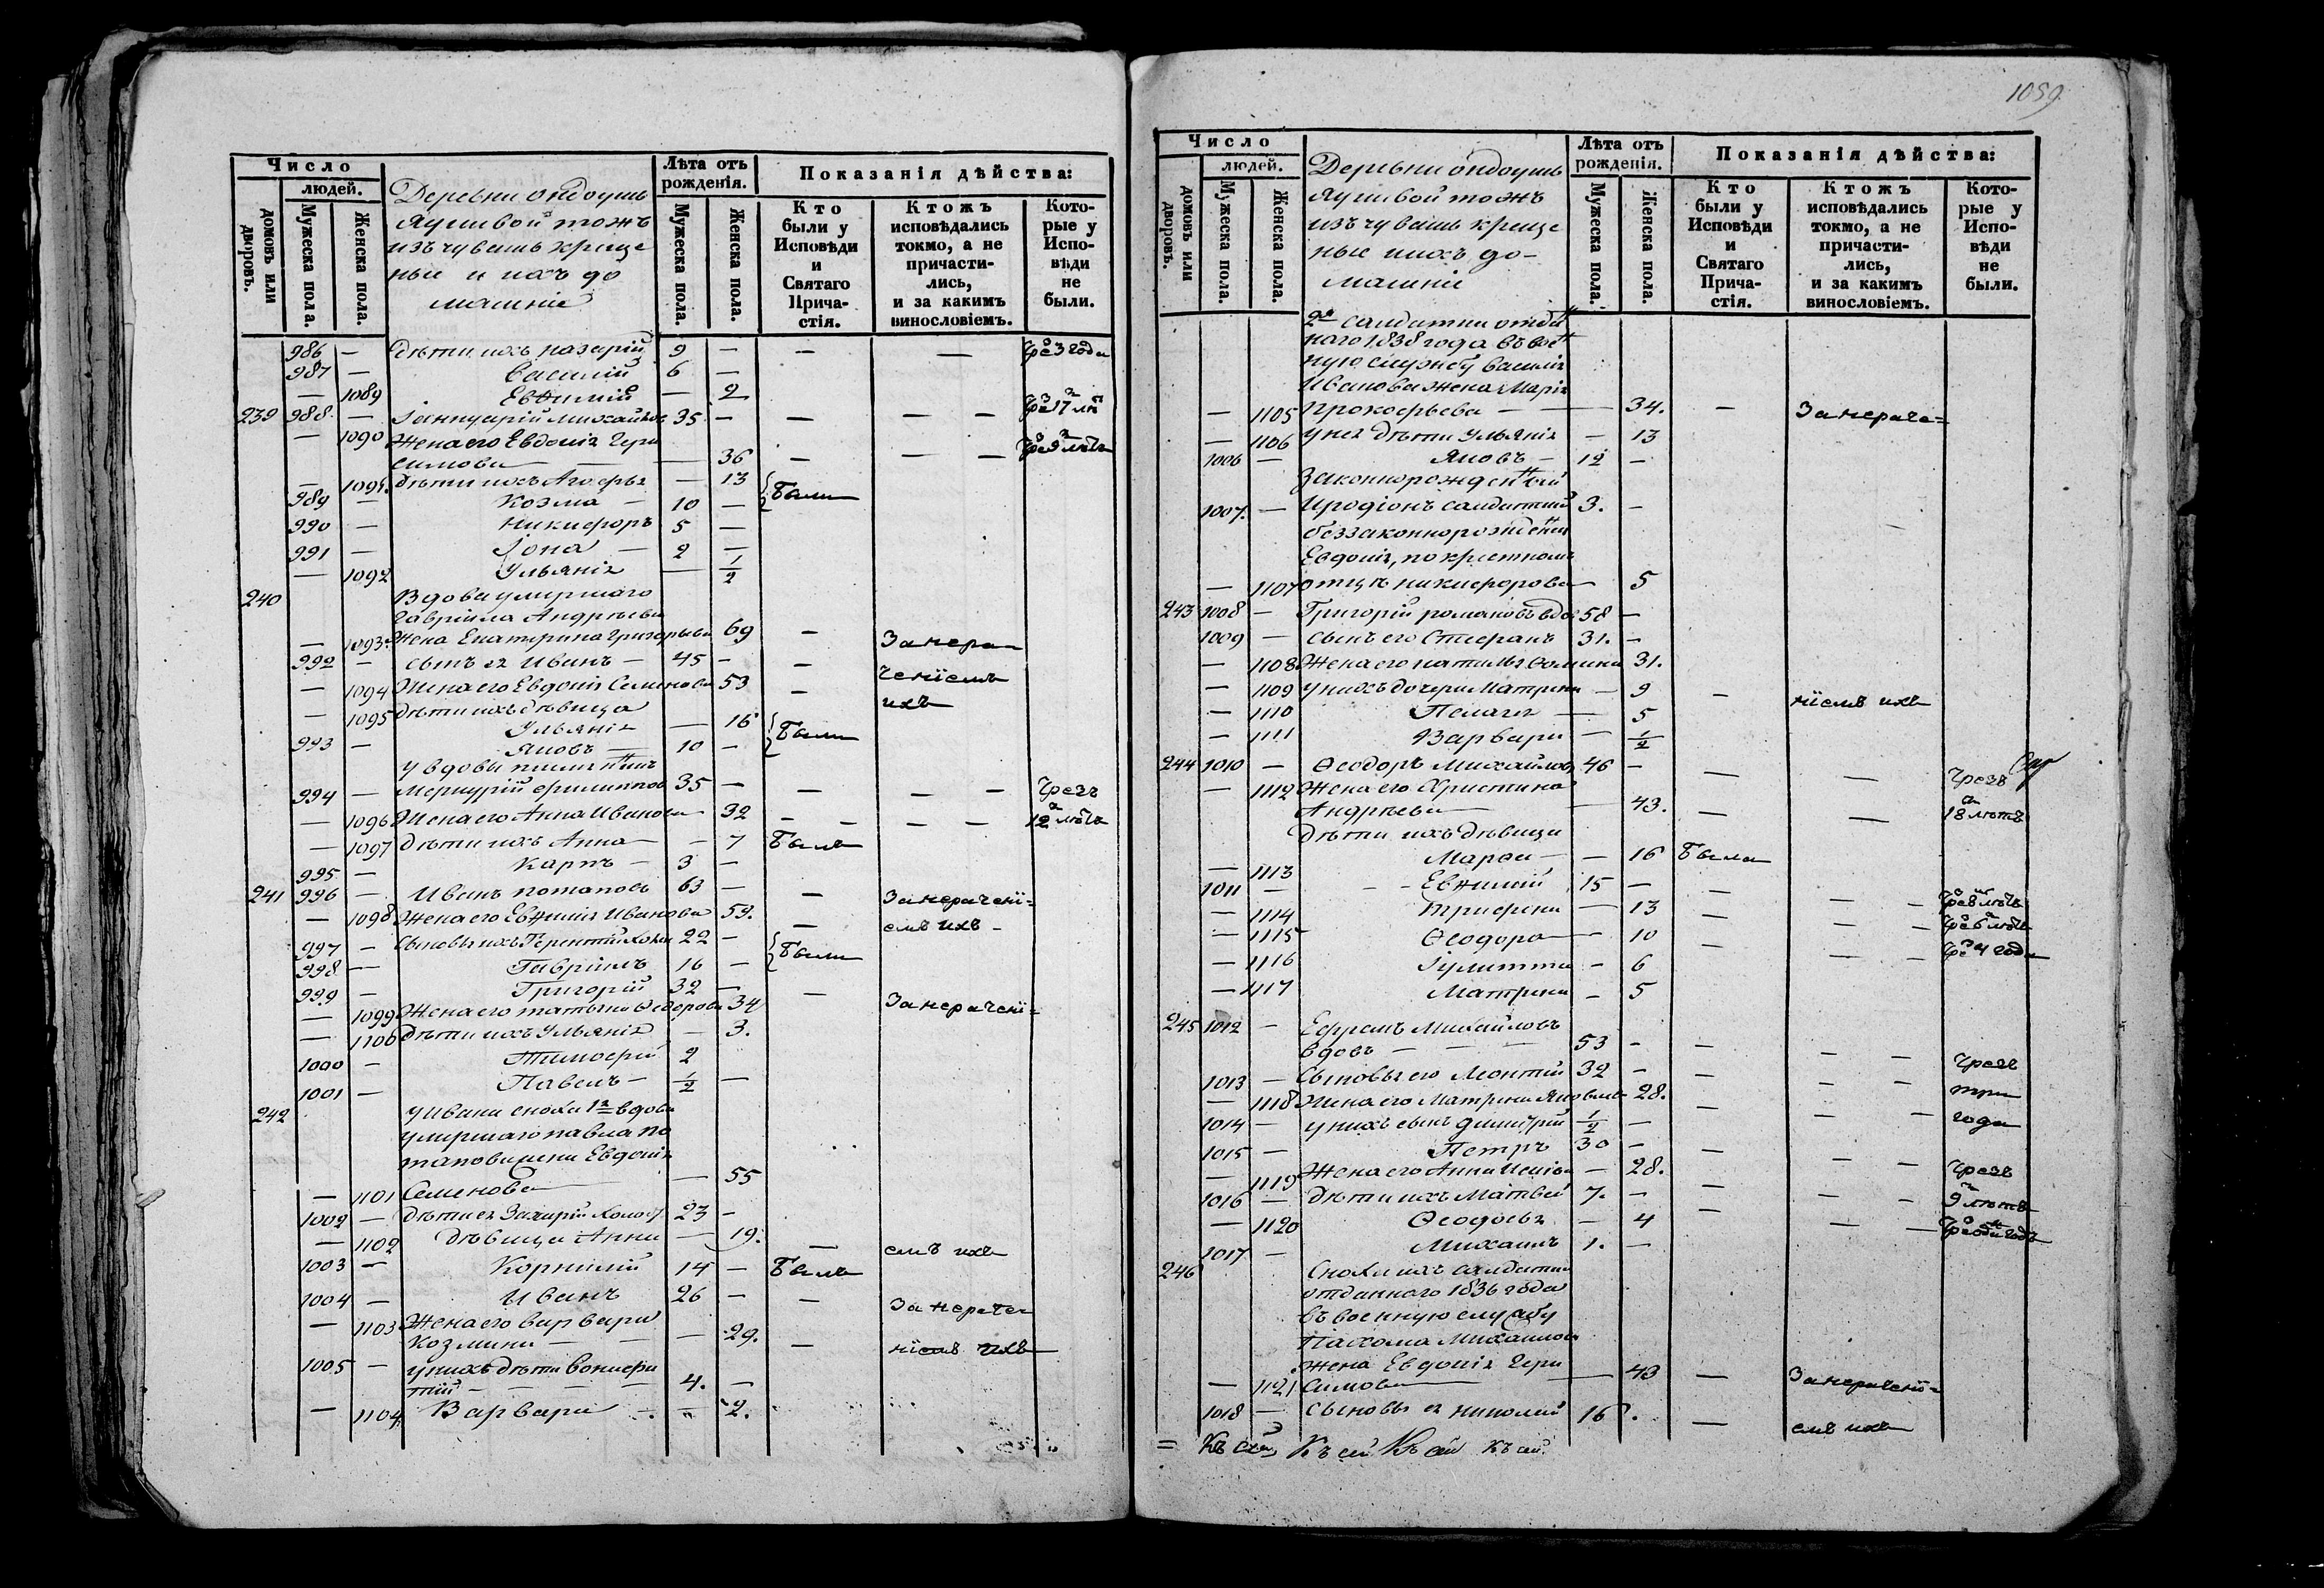 Число
людей.
домовъ или дворовъ.
Мужеска пола.
Женска пола.
Деревни
тожъ
изъ чувашъ креще
ные и ихъ до
машніе
Лѣта отъ рожденія.
Мужеска пола.
Женска пола.
Показанія дѣйства:
Кто были у Исповѣди и Святаго Причастія.
Ктожъ исповѣдались токмо, а не причастились, и за какимъ винословіемъ.
Которые у Исповѣди не были.
986 — дѣти ихъ Назарій 9 — — — 3 года
987 — Василій 6 —
— 1089 Евѳимій — 2
239 988 — Іаннуарій Михайлов 35 — — — —
— 1090 Жена его Евдокія Гера
симова — — 36 — — —
— 1091 дѣти ихъ Агафья — 13 Были
989 — Козма — 10 —
990 — Никифоръ 5 —
991 — Іона — 2 —
— 1092 Ульянія — 1/2
240 Вдова умершаго
Гавріила Андреева
— 1093 Жена Екатерина Григорьева 69 — За нера
992 — сынъ ея Иванъ — 45 — —
ченіемъ
— 1094 Жена его Евдокія Семенова 53 —
ихъ
— 1095 дѣти ихъ дѣвица
Ульянія — 16 Были
993 — Яковъ — 10 —
у вдовы
994 — Меркурій Филиппов 35 — — — — Чрезъ
— 1096 Жена его Анна Иванова 32 — — — — 12 лѣтъ
— 1097 дѣти ихъ Анна — 7 Была
995 — Карпъ — 3 —
241 996 — Иванъ Потаповъ 63 — — За нерачені=
— 1098 Жена его Евѳимія Иванова 53. — емъ ихъ —
997 — сыновья ихъ Терентій Холос 22 — Были
998 — Гавріилъ 16 —
999 — Григорій 32 — —
— 1099 Жена его Татьяна Ѳедорова 34 За нерачені=
— 1100 дѣти ихъ Ульянія — 3.
1000 — Тимофей 2
1001 — Павелъ — 1/2 —
242 у Ивана сноха 1я вдова
умершаго Павла По
тапова жена Евдокія
— 1101 Семенова — 55
1002 — дѣти ея Захарій Холост. 23 —
— 1102 дѣвица Анна — 19. — емъ ихъ
1003 — Корнилій 14 — Былъ
1004 — Иванъ 26 — — За нераче
— 1103 Жена его Варвара
Козмина — — — 29. — ніемъ ихъ
1005 — у нихъ дѣти Вонифа
тій — — — — 4. —
— 1104 Варвара — 2.
1059
Число
людей.
домовъ или дворовъ.
Мужеска пола.
Женска пола.
Деревни
тожъ
изъ чувашъ креще
ные и ихъ до-
машніе
Лѣта отъ рожденія.
Мужеска пола.
Женска пола.
Показанія дѣйства:
Кто были у Исповѣди и Святаго Причастія.
Ктожъ исповѣдались токмо, а не причастились, и за какимъ винословіемъ.
Которые у Исповѣди не были.
2я салдатка отда
наго 1838 года въ вое
ную службу Василія
Иванова жена Марія
— 1105 Прокофьева — — 34. — За нераче=
— 1106 у нея дѣти Ульянія — 13
1006 — Яковъ — 12 —
законнорожденный
1007. — Иродіонъ салдатскій 3. —
беззаконнорожденная
Евдокія, по крестному
— 1107 отцѣ Никифорова — 5
243 1008 — Григорій Романовъ вдов 58 —
1009 — сынъ его Стефанъ 31. —
— 1108 Жена его Наталья Фомина 31.
— 1109 у нихъ дочери Матрена — 9 — ніемъ ихъ
— 1110 Пелагея — 5
— 1111 Варвара — 1/2
244 1010 — Ѳеодоръ Михайловъ 46 — — — Чрезъ
— 1112 Жена его Христина
Андреева — 43. — — 18 лѣтъ
дѣти ихъ дѣвица
— 1113 Марфа — — 16 Была
1011 — Евѳимій 15 — — — —
— 1114 Трифена — 13 — — —
— 1115 Ѳеодора — 10 — — — 4 года
— 1116 Іулитта — 6
— 1117 Матрена — 5
245 1012 — Ефремъ Михайловъ
вдовъ — — — 53 — — — — Чрезъ
1013 — Сыновья его Монтій 32 — — — — три
— 1118 Жена его Матрена Яковлева 28. — — — года
1014 — у нихъ сынъ Димитрій 1/2 —
1015 — Петръ 30 — — — — Чрезъ
— 1119 Жена его Анна — 28. — — — 9 лѣтъ
1016 — дѣти ихъ Матвей 7. — — — —
— 1120 Ѳеодосья — 4
1017 — Михаилъ 1. —
246 Сноха ихъ салдатка
отданнаго 1836 года
въ военную службу
Пахома Михайлова
жена Евдокія Гера
— 1121 симова — — 43 — За нерачені=
1018 — сыновья ея Николай 16. — емъ ихъ